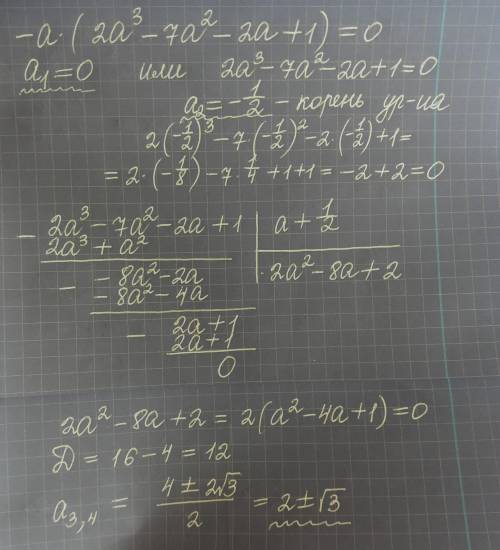 -a·(2a³-7a²-2a+1)=0
a₁=0 или 2a³-7a²-2a+1=0
a₂=-1/2 - корень ур-ия
2(-1/2)³-7·(-1/2)²-2·(-1/2)+1=
=2·(-1/8)-7·1/4+1+1=-2+2=0
- 2a³-7a²-2a+1 | a+1/2
2a³+a² | 2a²-8a+2
- -8a²-2a
-8a²-4a
- 2a+1
2a+1
0
2a²-8a+2=2(a²-4a+1)=0
Д=16-4=12
a₃,₄ = (4±2√3)/2 = 2±√3